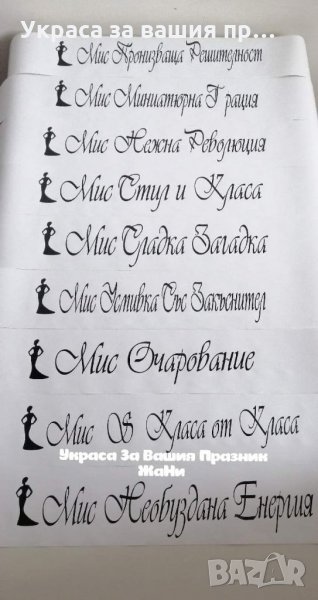 Украса за вашия пр...
Мис Пронизваща Решителност
Мис Миниатюрна Грация
Мис Нежна Революция
Мис Стил и Класа
Мис Сладка Загадка
Мис Усмивка Със Закъснител
Мис Очарование
Мис S Класа от Класа
Украса За Вашия Празник
ЖаНи
Мис Необуздана Енергия
BAZAR